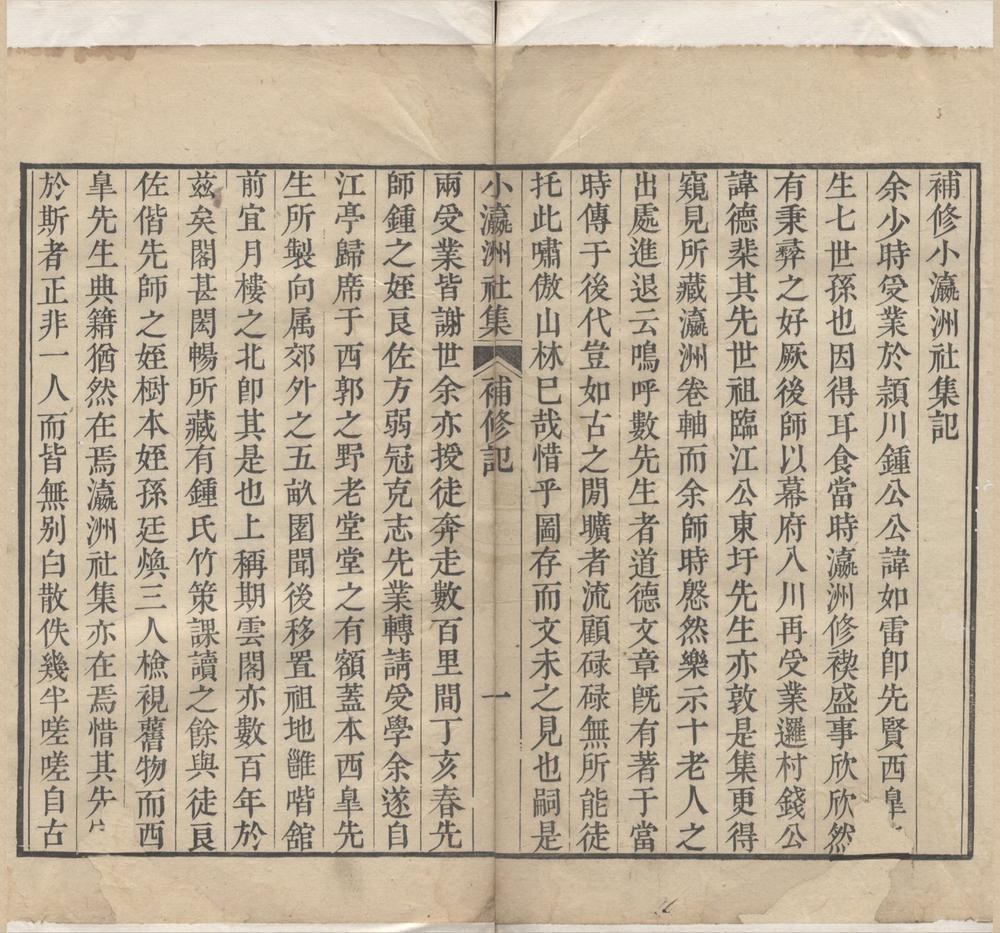 補修小瀛洲社集記
余少時受業於潁川鍾公公諱如雷卽先賢西皐
生七世孫也因得耳食當時瀛洲修禊盛事欣欣然
有秉彝之好厥後師以幕府入川再受業邏村錢公
諱德棻其先世祖臨江公東圩先生亦敦是集更得
窺見所藏瀛洲卷軸而余師時慇然樂示十老人之
出處進退云嗚呼數先生者道德文章旣有著于當
時傳于後代豈如古之閒曠者流顧碌碌無所能徒
托此嘯傲山林已哉惜乎圖存而文未之見也嗣是
小瀛洲社集 補修記 一
兩受業皆謝世余亦授徒奔走數百里間丁亥春先
師鍾之姪良佐方弱冠克志先業轉請受學余遂自
江亭歸席于西郭之野老堂堂之有額蓋本西皐先
生所製向属郊外之五畝園聞後移置祖地雝喈舘
前宜月樓之北卽其是也上稱期雲閣亦數百年於
茲矣閣甚閎暢所藏有鍾氏竹策課讀之餘與徒良
佐偕先師之姪樹本姪孫廷煥三人檢視舊物而西
皐先生典籍猶然在焉瀛洲社集亦在焉惜其先
於斯者正非一人而皆無别白散佚幾半嗟嗟自古